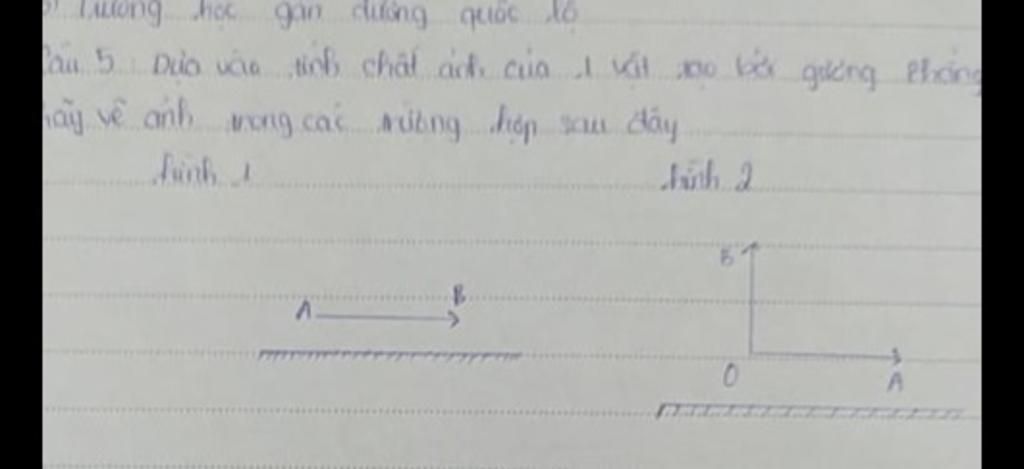 Trường học gần đường quốc lộ
Câu 5 Dựa vào tính chất ảnh của 1 vật tạo bởi gương Phẳng
hãy vẽ ảnh trong các trường hợp sau đây
hình 1 hình 2
B
A B
O A